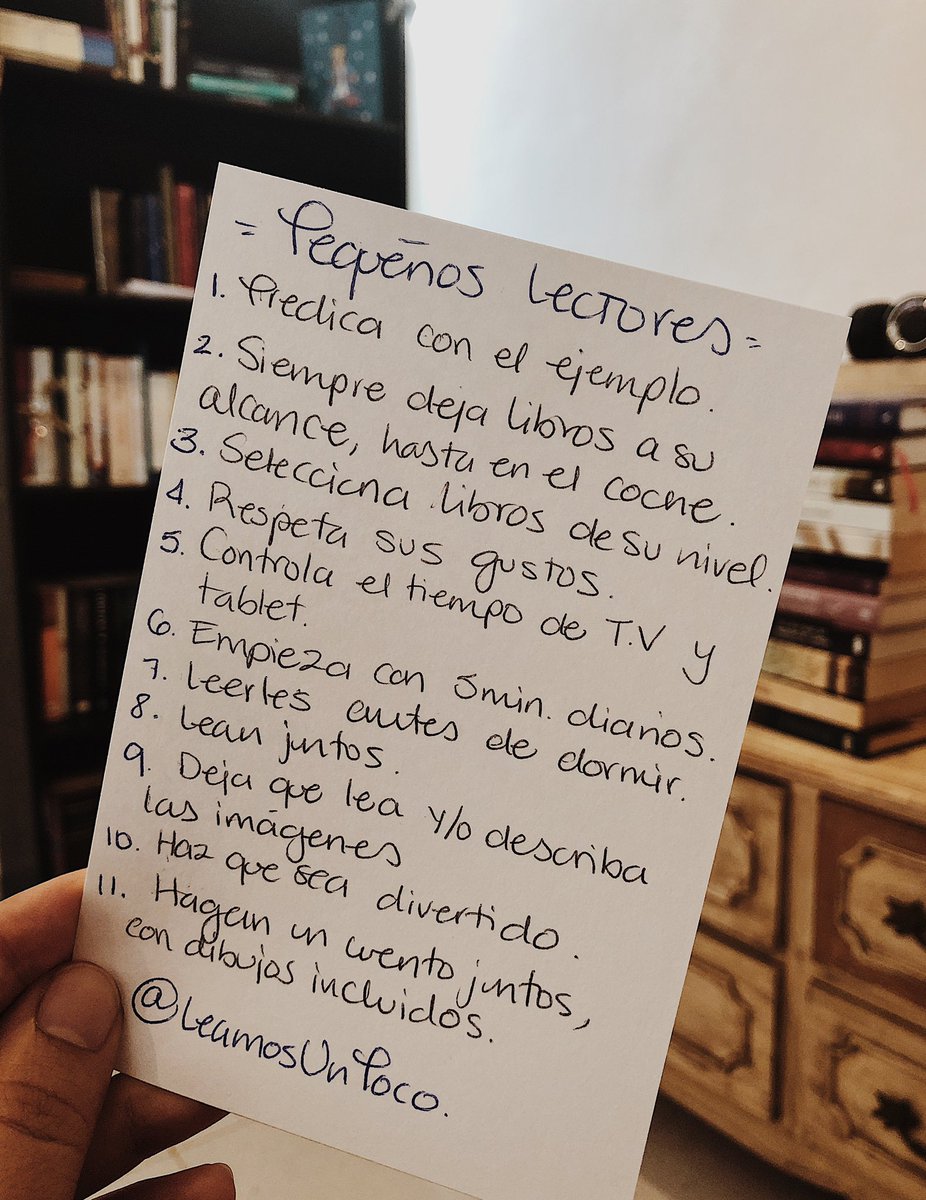 = Pequeños Lectores =
1. Predica con el ejemplo.
2. Siempre deja libros a su
alcance, hasta en el coche.
3. Selecciona libros de su nivel.
4. Respeta sus gustos.
5. Controla el tiempo de T.V y
tablet.
6. Empieza con 5 min. diarios.
7. Leerles antes de dormir.
8. Lean juntos.
9. Deja que lea y/o describa
las imágenes
10. Haz que sea divertido.
11. Hagan un cuento juntos,
con dibujos incluidos.
@LeamosUnPoco.